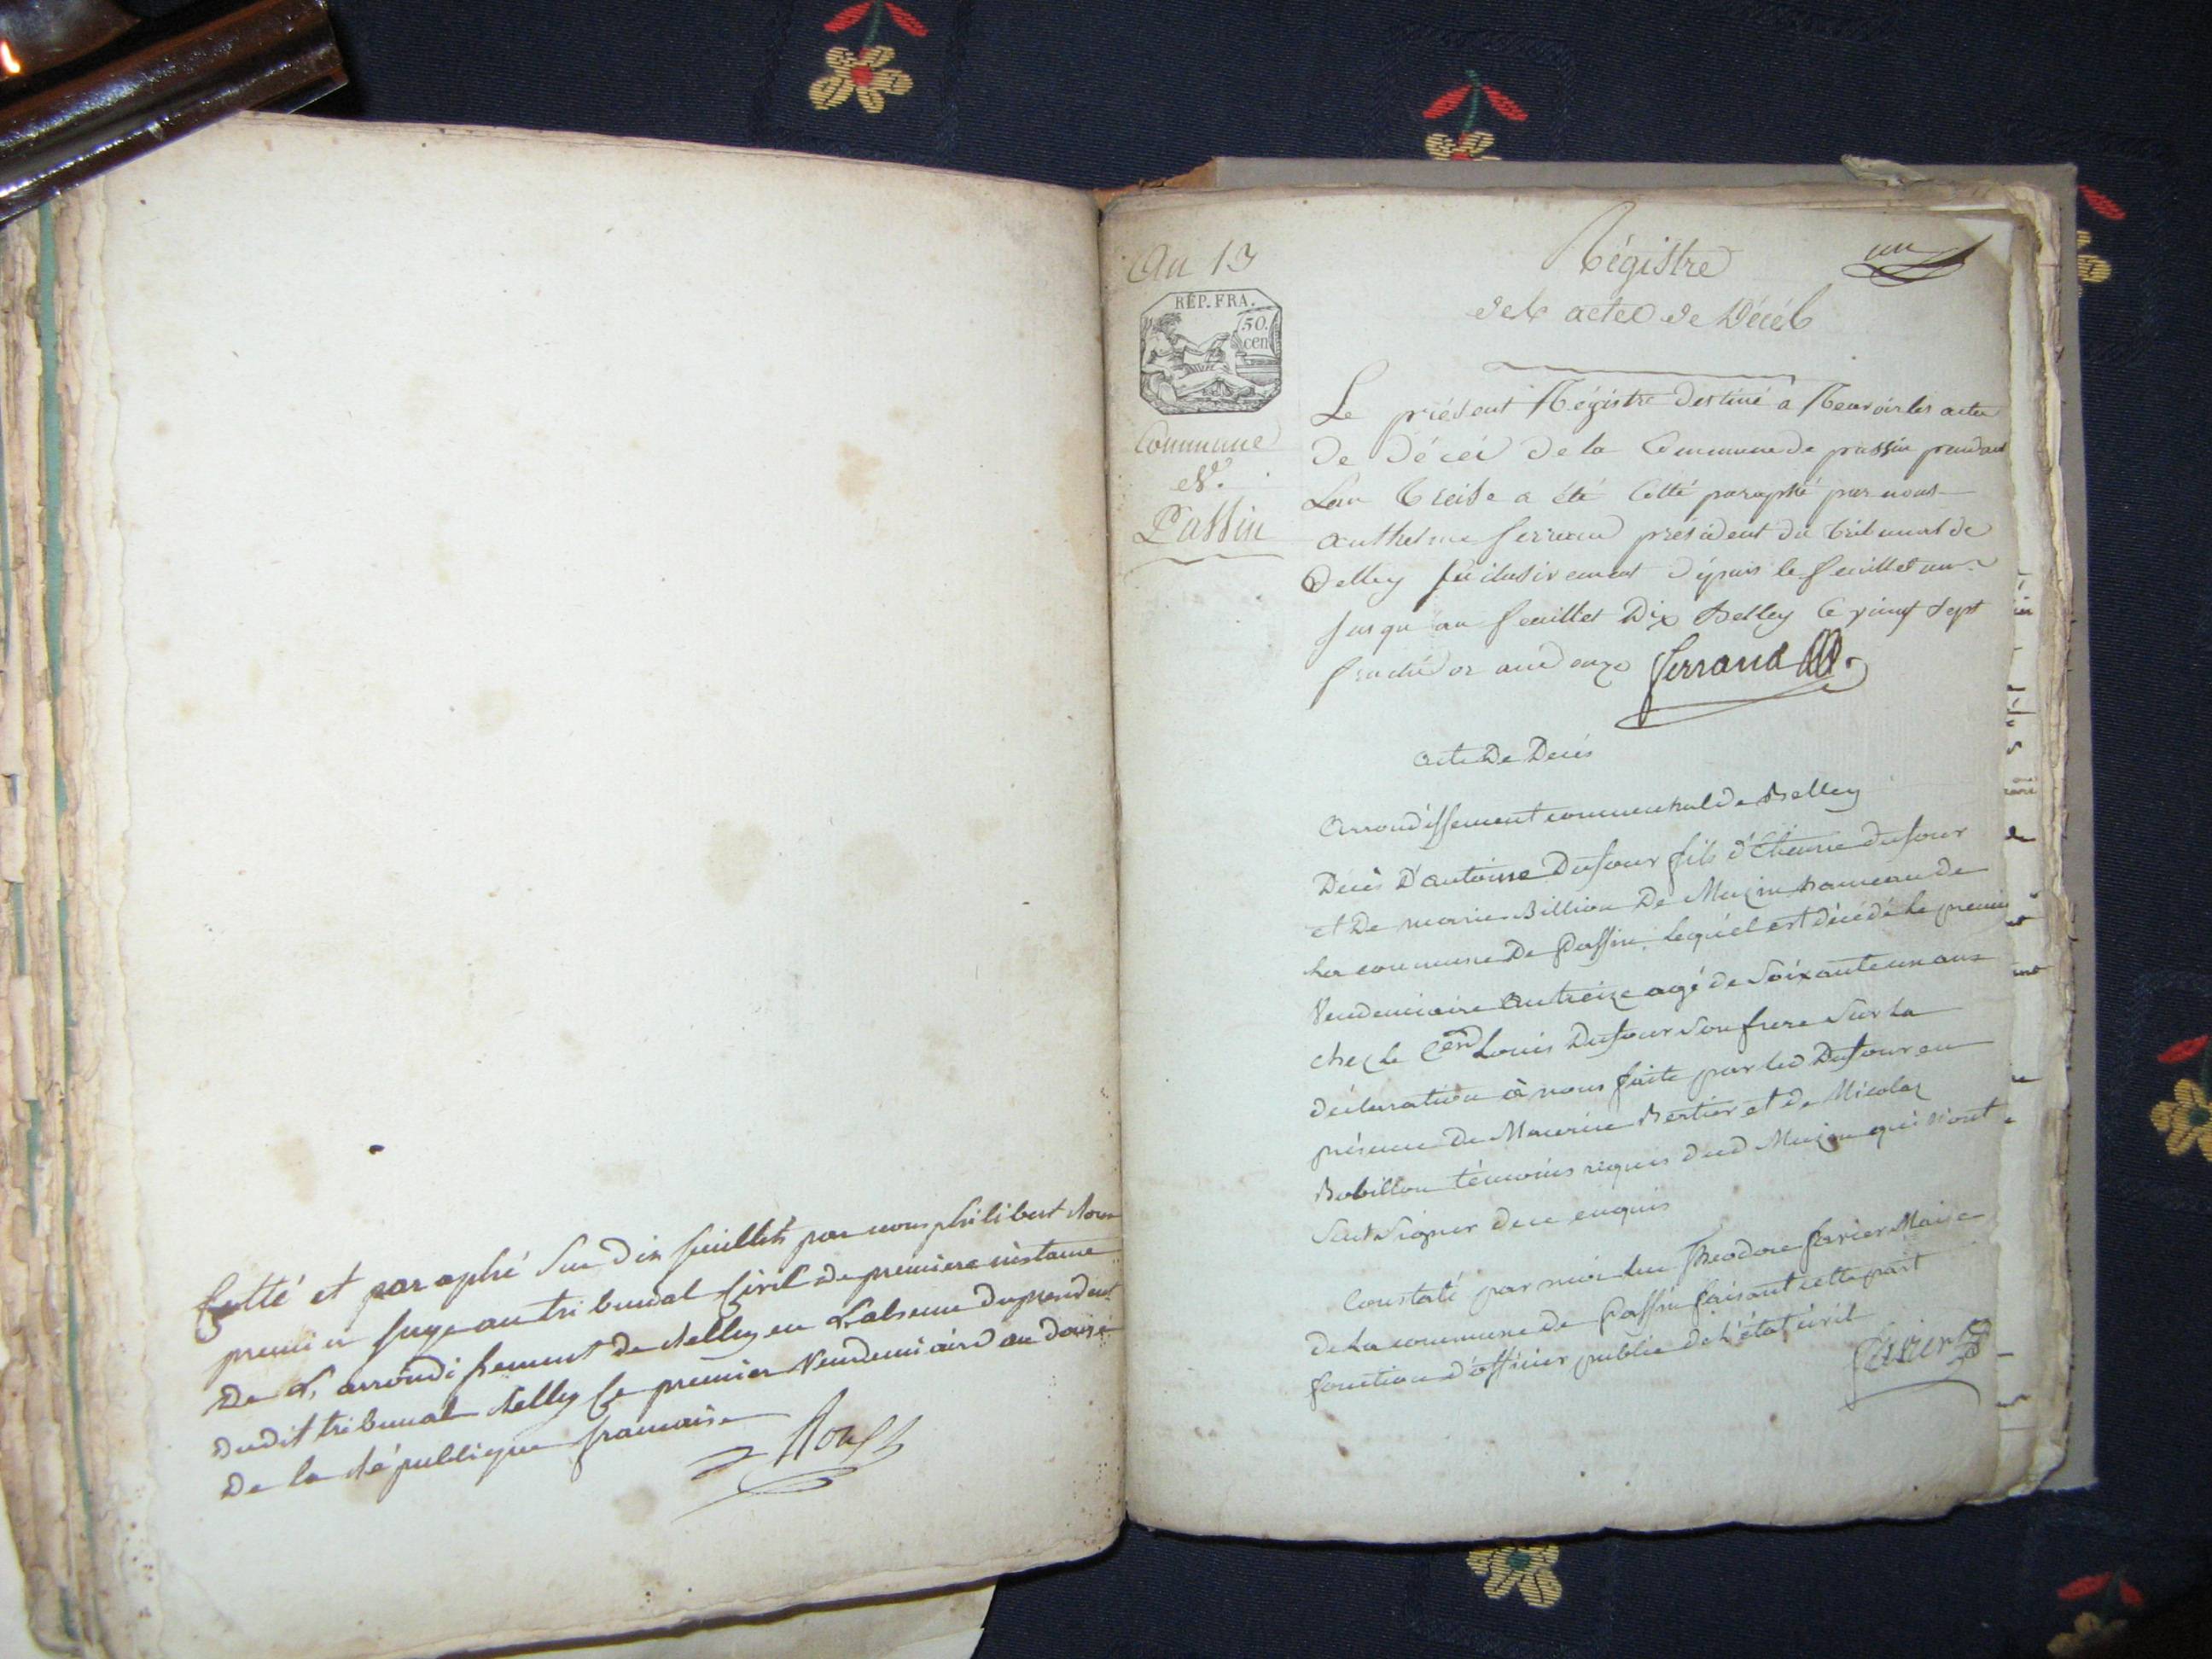 Cotté et paraphé Sur dix feuillets par nous philibert
premier Juge au tribunal Civil de premiere instance
De L'arrondissement de Belley en L'absence du président
Dudit tribunal Belley le premier Vendemiaire an douze
De la République francaise
An 13
RÉP. FRA.
50.
cen
Commune
de
Passin
Régistre
un
des actes de Décés
Le présent Régistre destiné a Recevoir les actes
De Décés De la Commune de passin pendant
Lan treise a été Cotté paraphé par nous
anthelme ferrand président du tribunal de
Belley depuis le feuillet un
Jusqu'au feuillet Dix Belley Ce vingt Sept
fructidor an douze ferrand
Acte De Decés
Arrondissement communal De Belley
Décès D'antoine Dufour fils d'Etienne Dufour
et De marie Billion De Muzin hameau de
La commune De Passin, lequel est décédé le premier
Vendemiaire an treize agé de Soixante un ans
chez le Cen Louis Dufour Son frere Sur La
déclaration à nous faite par led Dufour en
présence De Maurice Bertier et de Nicolas
Bobillon témoins requis dud Muzin qui n'ont
Sceu Signer de ce enquis
Constaté par moi Theodore ferier Maire
de La commune de Passin faisant cette part
fonction d'officier public de l'état civil